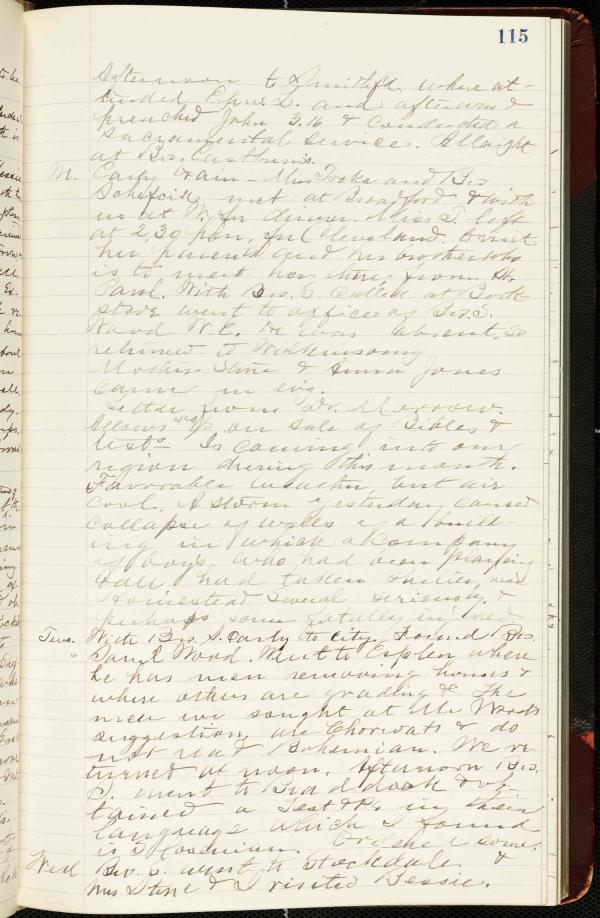 115
Afternoon to Smithfd. where at-
tended Chris. E. and afterward
preached John 3.16 & conducted a
sacramental services. All night
at Bro. Eastburn's.
M. Early train - Miss Toska and Bro
met at Bradford & with
us at for dinner. Miss T. left
at 2,30 p.m, for Cleveland. to visit
her parents and her brother who
is to meet her there from St.
Paul. With Bro. S. called at Book
store went to office of Bro. S.
Wood W.E. He was absent, so
returned to Wilkinsburg
Mother Jane & Anna Jones
came in evg.
Letter from Dr. Morrow.
Allows us on sale of Bibles &
Tests. Is coming into our
region during this month.
Favorable weather, but air
cool. A storm yesterday caused
collapse of walls of a build-
ing in which a company
of boys who had been playing
ball had taken shelter, near
Homestead. Several seriously &
perhaps some fatally injured
Tues. With Bro. S. early to city. Found Bro.
Saml Wood. Went to Esplen where
he has men removing houses &
where others are grading &c The
men we sought at Mr Wood's
suggestion, are Chorwats & do
not read Bohemian. We re-
turned at noon. Afternoon Bro.
S. went to Braddock & ob-
tained a Test & Ps. in their
language which I found
is Slovenian. Ordered some.
Wed Bro. S. went to Stockdale. &
Mrs Stone & I visited Bessie.